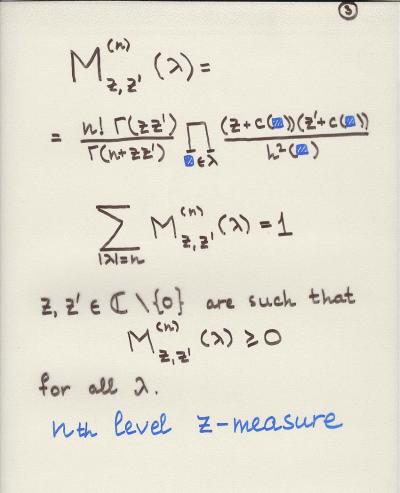 3
M_{z,z'}^{(n)} (λ) =
= \frac{n! Γ(zz')}{Γ(n+zz')} ∏_{□∈λ} \frac{(z+c(□))(z'+c(□))}{h²(□)}
∑_{|λ|=n} M_{z,z'}^{(n)} (λ) = 1
z, z' ∈ ℂ \ {0} are such that
M_{z,z'}^{(n)} (λ) ≥ 0
for all λ.
nth level z-measure